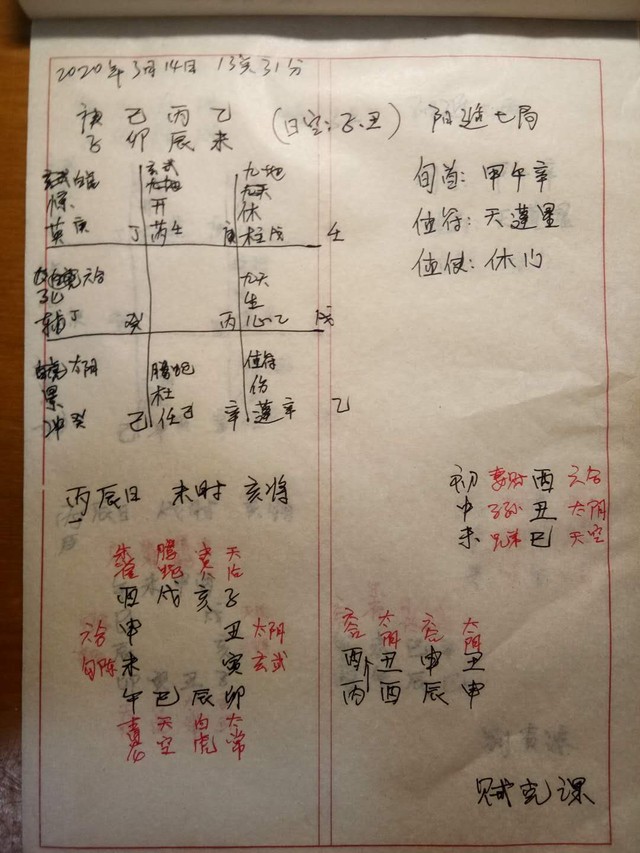 2020年3月14日 13点31分
庚 己 丙 乙 (日空:子、丑) 阳遁七局
子 卯 辰 未
旬首: 甲午辛
值符: 天蓬星
值使: 休门
玄武 九地
九地 九天
开 休
英 庚 丁 芮 壬 庚 柱 戊 壬
六合 九天
生
辅 丁 癸 丙 心 乙 戊
太阴 腾蛇 值符
景 杜 伤
冲 癸 己 任 己 辛 蓬 辛 乙
丙辰日 未时 亥将
初 妻财 酉 六合
中 子孙 丑 太阴
末 兄弟 巳 天空
朱雀 腾蛇 贵人 天后
酉 戌 亥 子
六合 申 丑 太阴
勾陈 未 寅 玄武
午 巳 辰 卯
青龙 天空 白虎 太常
六合 太阴 六合 太阴
酉 丑 申 丑
丙 酉 辰 申
贼克课